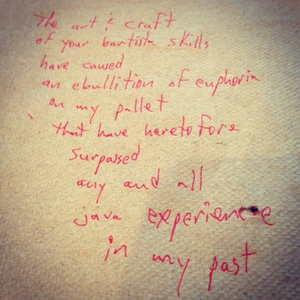 The art & craft
of your bartista skills
have caused
an ebullition of euphoria
on my pallet
that have heretofore
surpassed
any and all
java experience
in my past